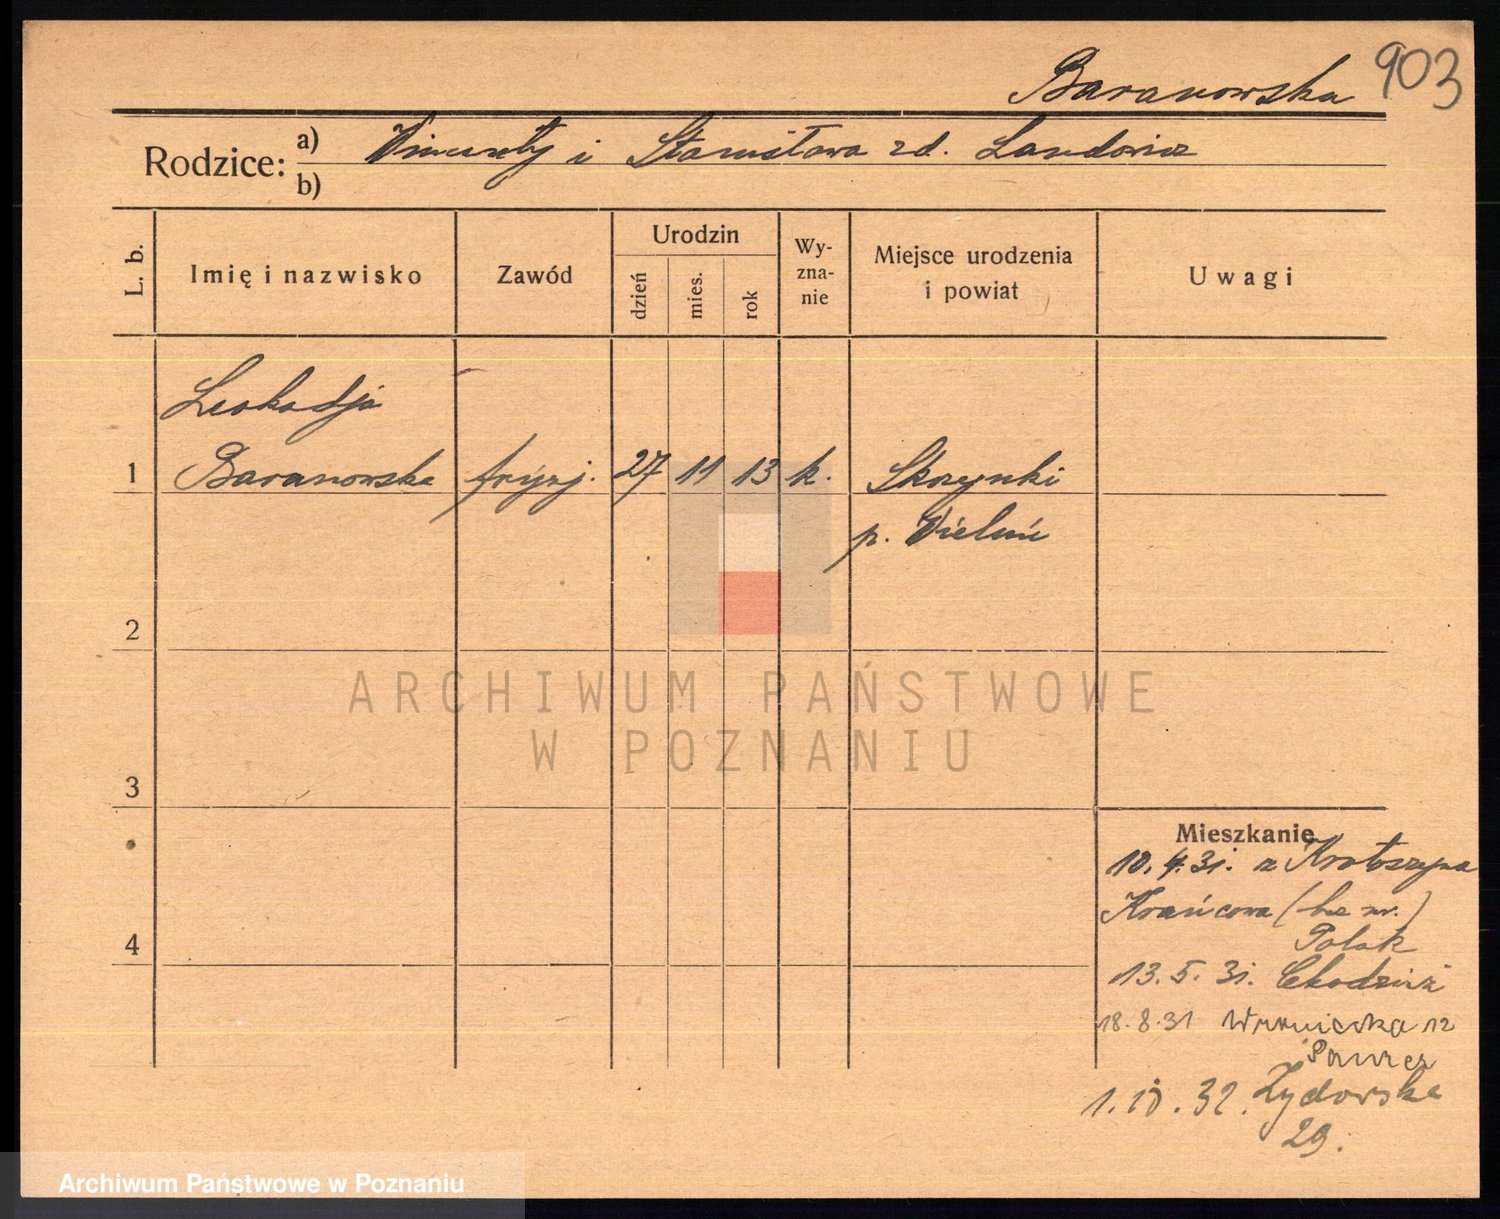 Baranowska 903
Rodzice: a) Wincenty i Stanisława zd. Landowicz
b)
L. b. Imię i nazwisko Zawód Urodzin dzień mies. rok Wy-zna-nie Miejsce urodzenia i powiat Uwagi
Leokadja
1 Baranowska fryzj. 27 11 13 k. Skrzynki
p. Wieluń
2
ARCHIWUM PAŃSTWOWE
W POZNANIU
3
Mieszkanie
10.4.31. z Krotoszyna
4 Krańcowa (bez nr.)
Polak
13.5.31. Chodzież
18.8.31 Wroniecka 12
1.10.32. Żydowska
29.
Archiwum Państwowe w Poznaniu